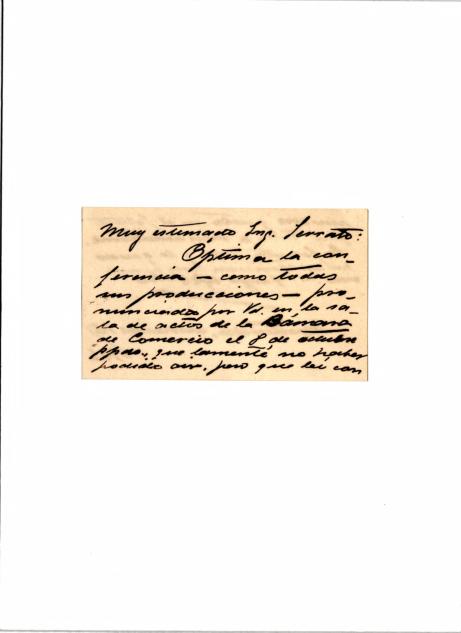 Muy estimado Ing. Serrato:
Optima la con-
ferencia - como todas
sus producciones - pro-
nunciada por Vd. en la sa-
la de actos de la Cámara
de Comercio el 8 de octubre
ppdo., que lamenté no haber
podido oir, pero que leí con